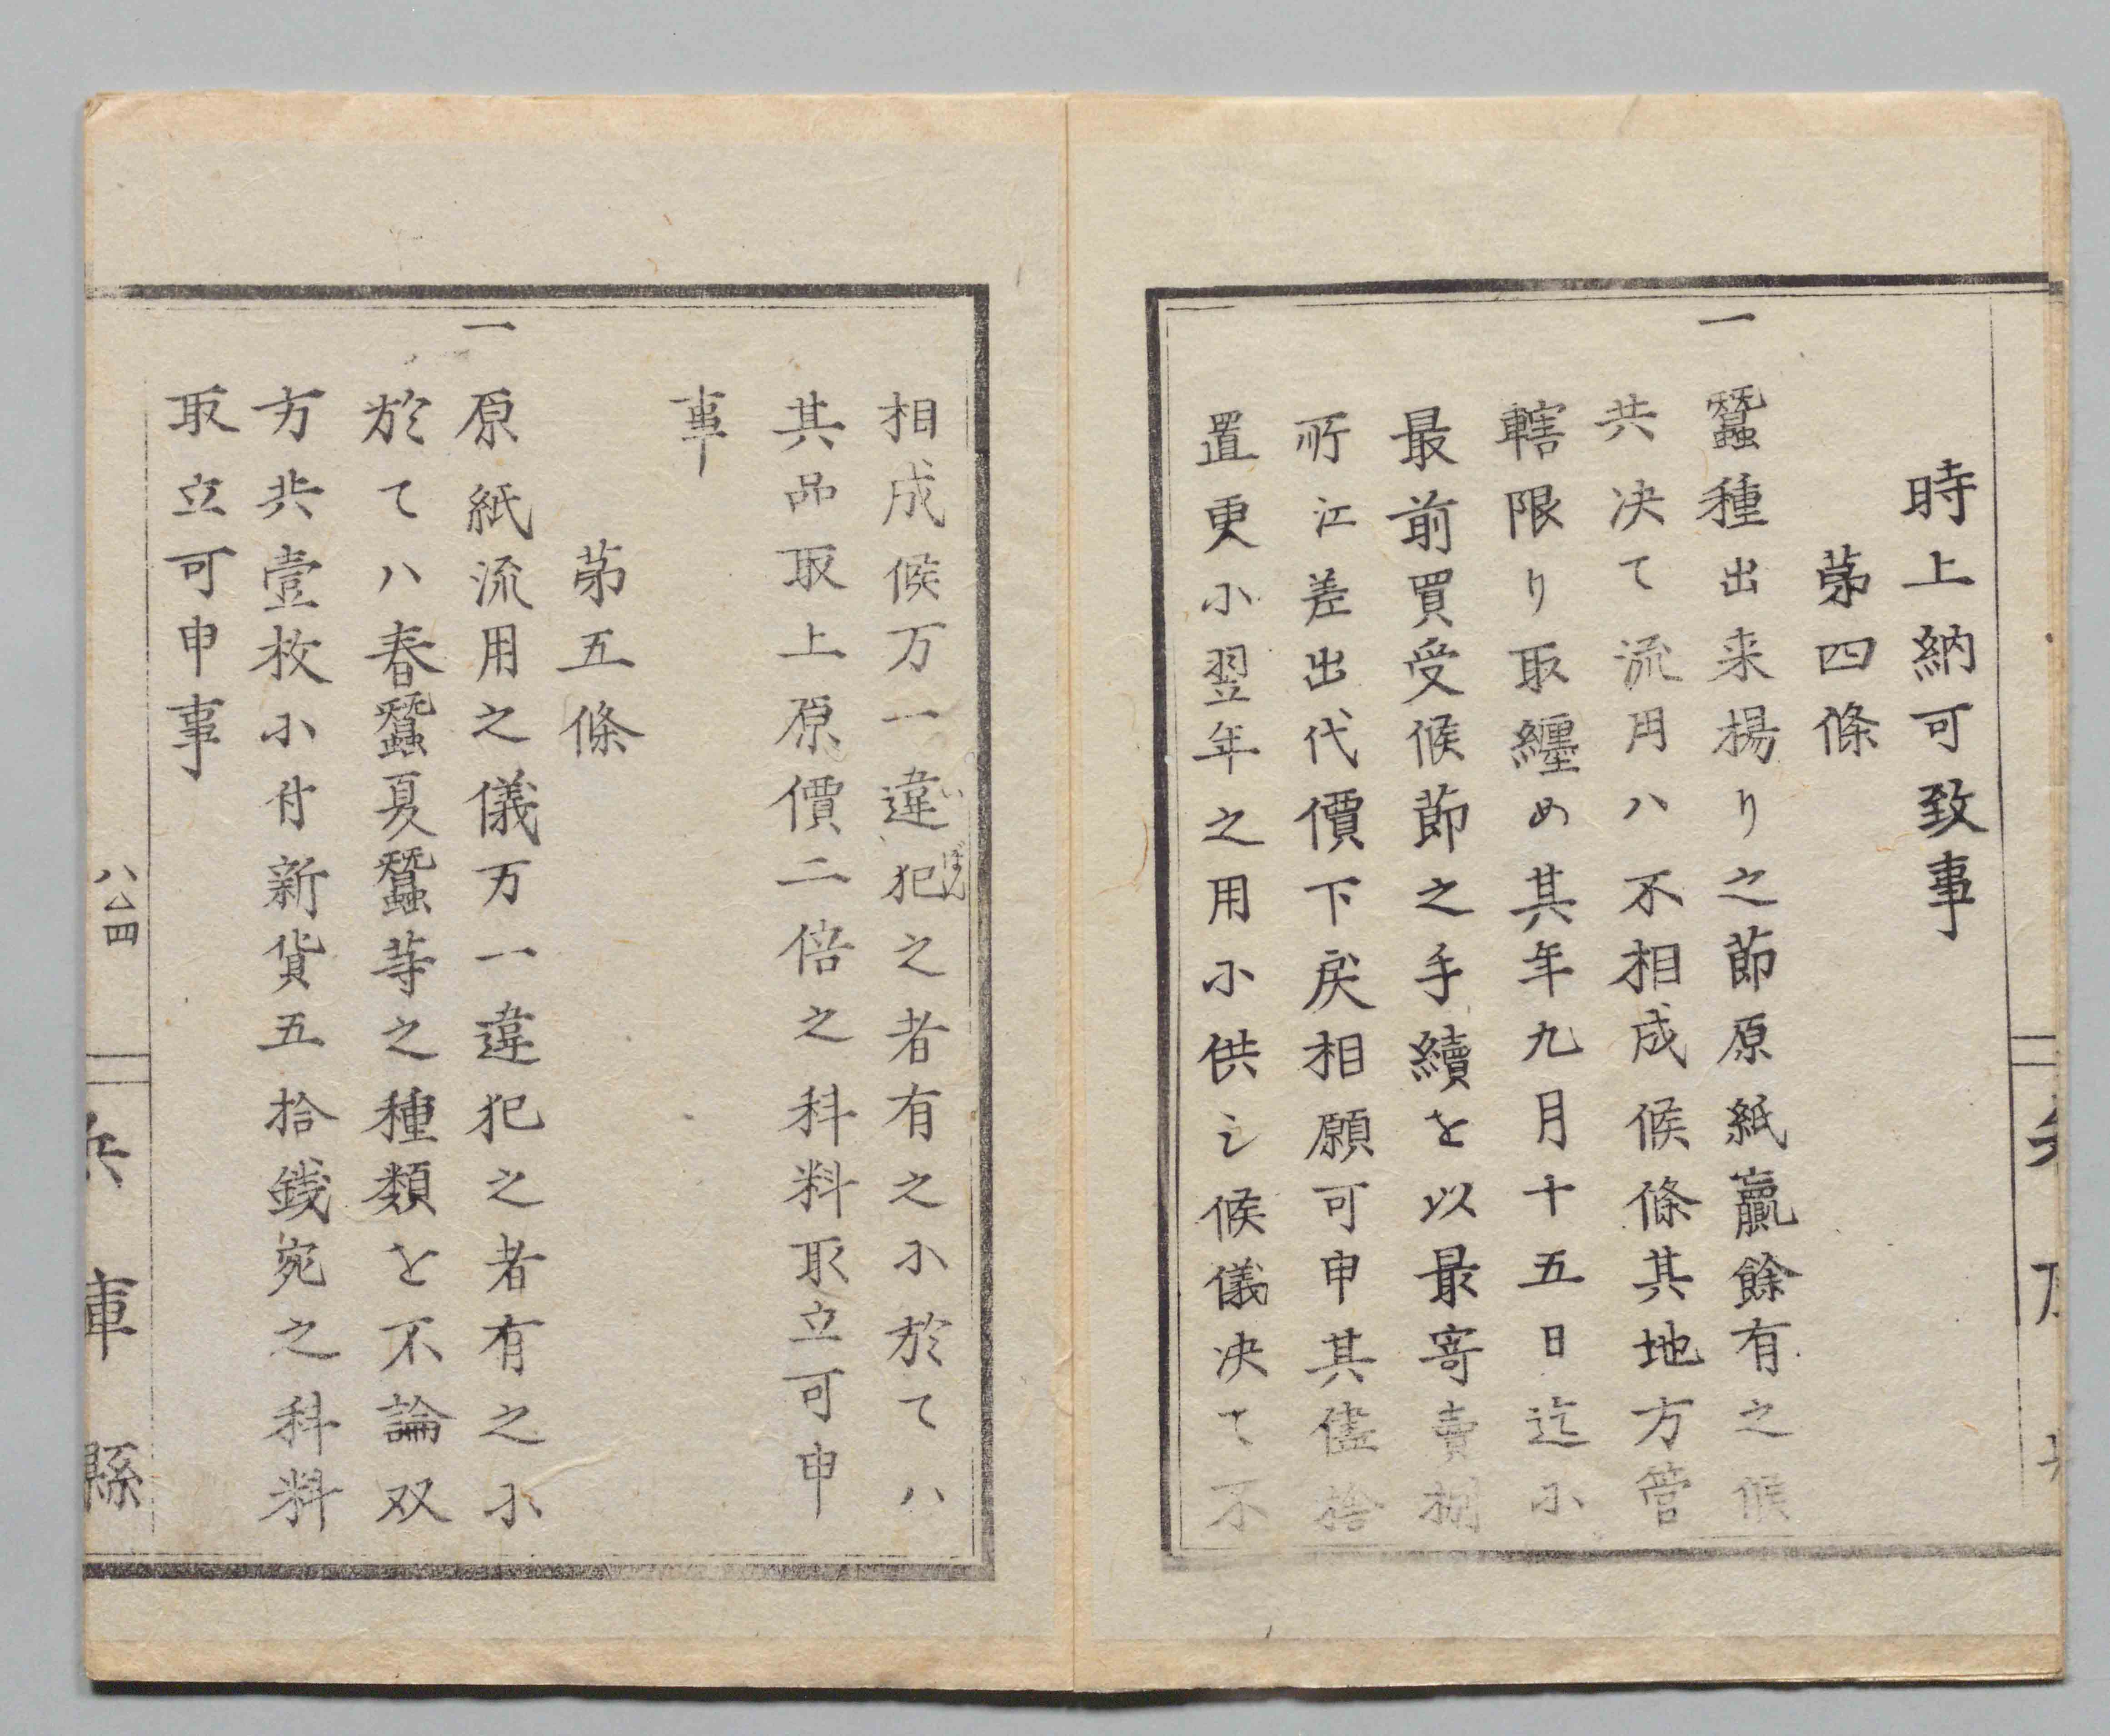 時上納可致事
第四條
一 蠶種出来揚り之節原紙贏餘有之候
共决て流用ハ不相成候條其地方管
轄限り取纏め其年九月十五日迄小
最前買受候節之手續を以最寄賣捌
所江差出代價下戻相願可申其儘捨
置更小翌年之用小供し候儀决て不
相成候万一違犯之者有之小於てハ
いぼん
其品取上原價二倍之科料取立可申
事
第五條
一 原紙流用之儀万一違犯之者有之小
於てハ春蠶夏蠶等之種類を不論双
方共壹枚小付新貨五拾銭宛之科料
取立可申事
八ノ四
兵庫縣